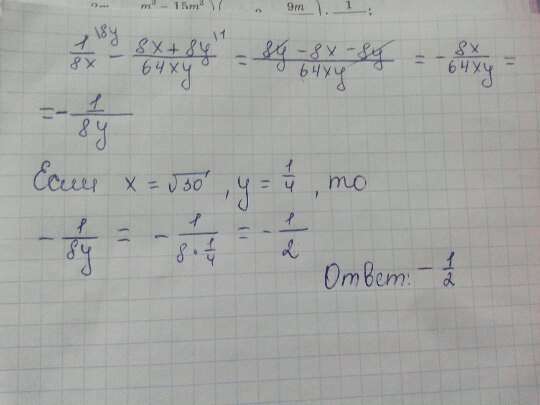 m³ − 15m² )( 9m ) · 1 ;
1/8x \8y − (8x + 8y)/64xy \1 = (8y − 8x − 8y)/64xy = − 8x/64xy =
= − 1/8y
Если x = √30 , y = 1/4 , то
− 1/8y = − 1/(8·1/4) = − 1/2
Ответ: − 1/2